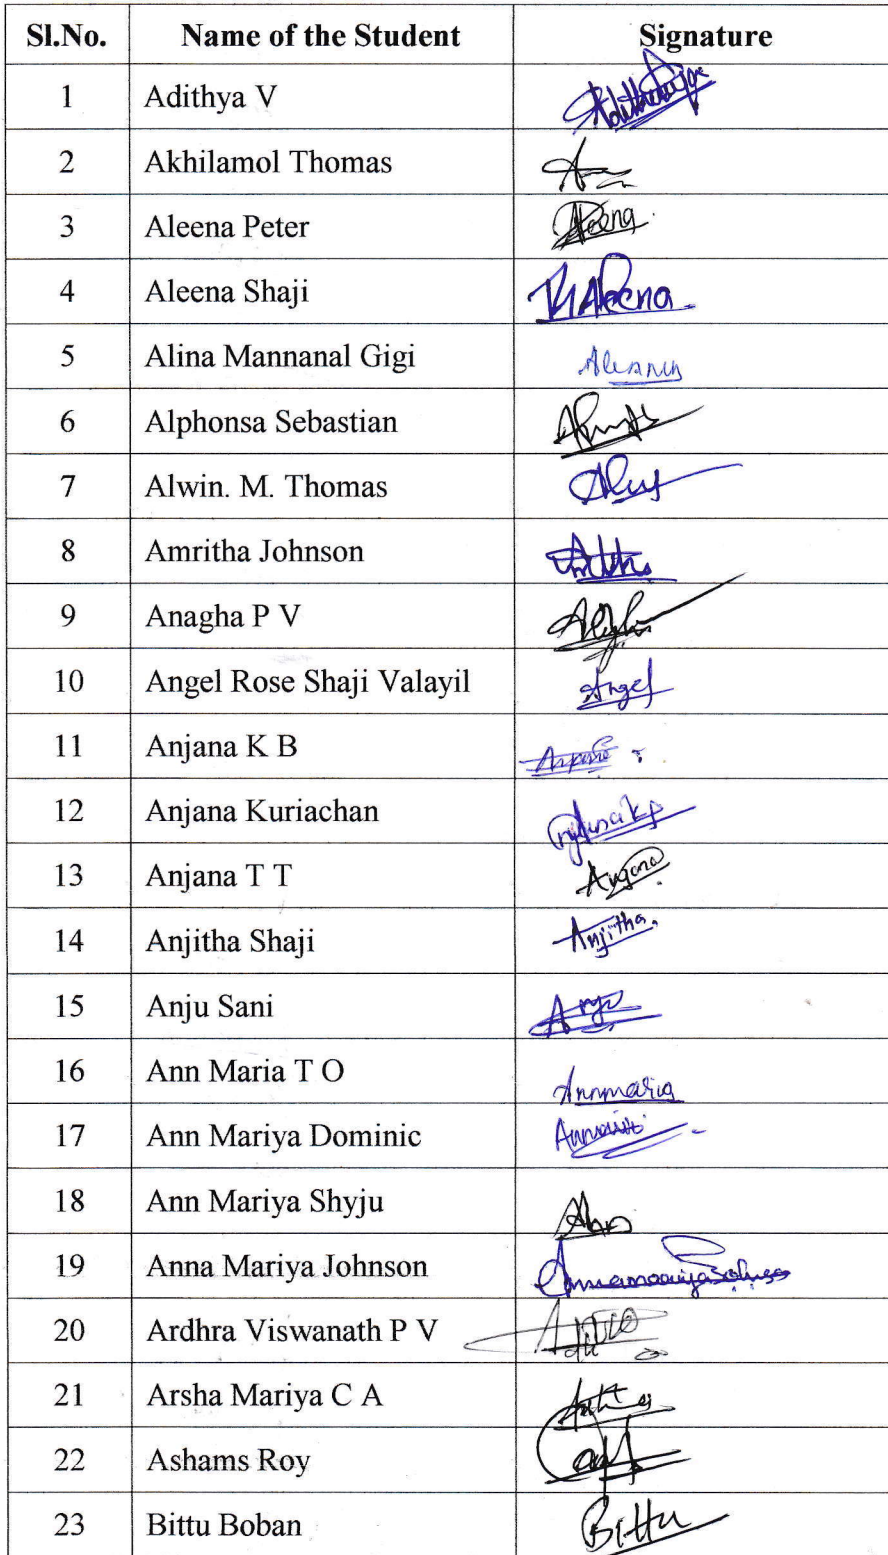 Sl.No. Name of the Student Signature
1 Adithya V
2 Akhilamol Thomas
3 Aleena Peter Aleena
4 Aleena Shaji Aleena
5 Alina Mannanal Gigi
6 Alphonsa Sebastian
7 Alwin. M. Thomas
8 Amritha Johnson
9 Anagha P V
10 Angel Rose Shaji Valayil Angel
11 Anjana K B
12 Anjana Kuriachan
13 Anjana T T Anjana
14 Anjitha Shaji Anjitha.
15 Anju Sani Anju
16 Ann Maria T O Annmaria
17 Ann Mariya Dominic
18 Ann Mariya Shyju
19 Anna Mariya Johnson
20 Ardhra Viswanath P V
21 Arsha Mariya C A
22 Ashams Roy
23 Bittu Boban Bittu